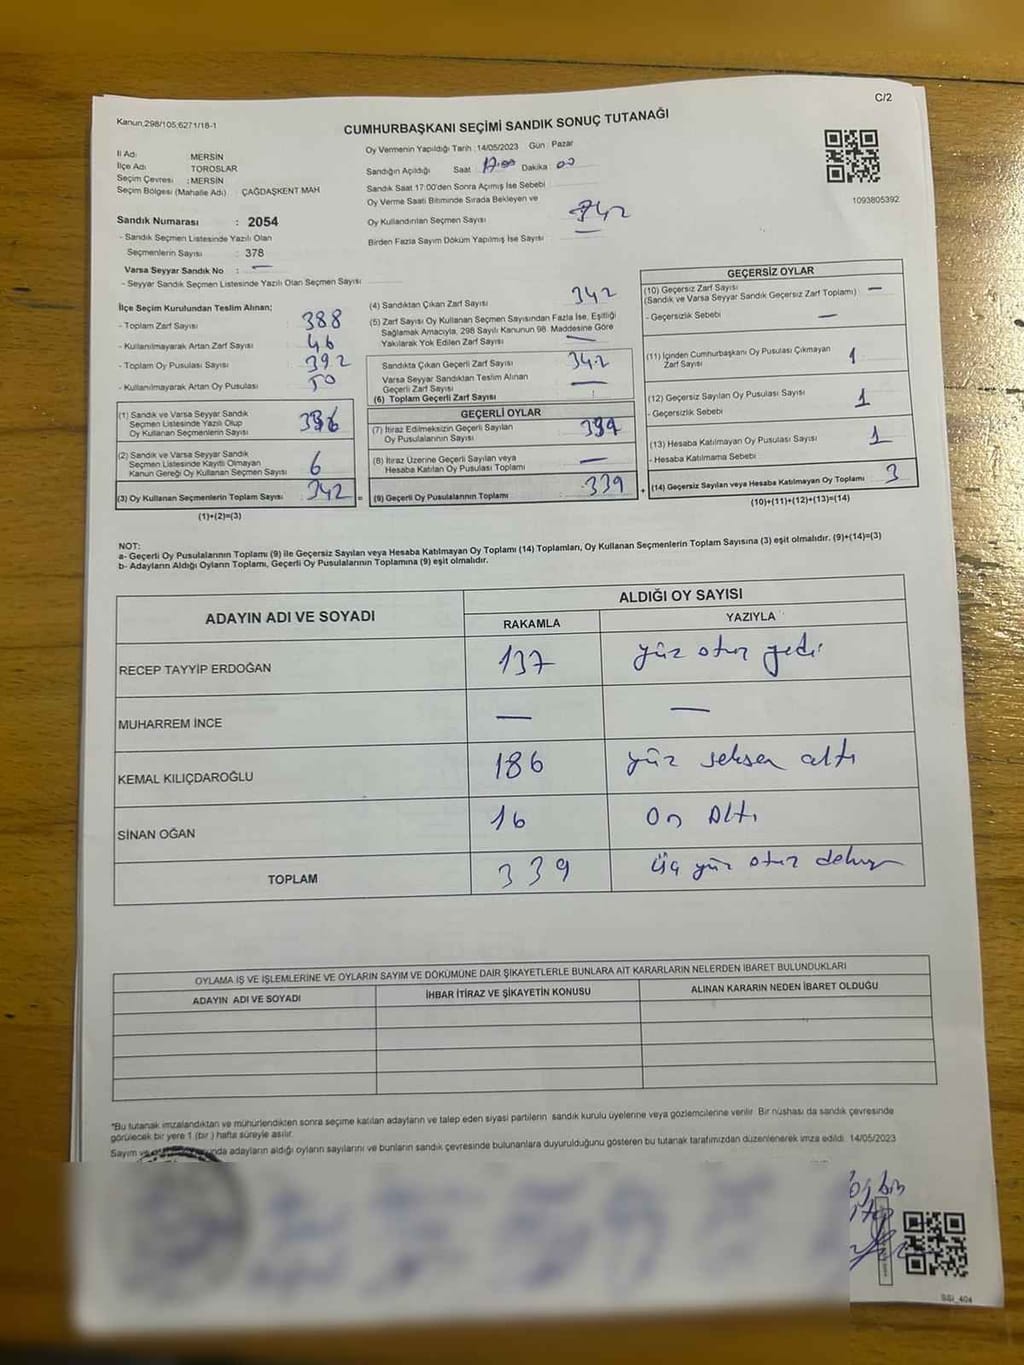 C/2
Kanun,298/105;6271/18-1
CUMHURBAŞKANI SEÇİMİ SANDIK SONUÇ TUTANAĞI
İl Adı MERSİN
İlçe Adı TOROSLAR
Seçim Çevresi : MERSİN
Seçim Bölgesi (Mahalle Adı) ÇAĞDAŞKENT MAH
Oy Vermenin Yapıldığı Tarih :14/05/2023 Gün : Pazar
Sandığın Açıldığı Saat 17.00 Dakika 00
Sandık Saat 17:00'den Sonra Açımış İse Sebebi
Oy Verme Saati Bitiminde Sırada Bekleyen ve
Oy Kullandırılan Seçmen Sayısı 342
Birden Fazla Sayım Döküm Yapılmış İse Sayısı —
1093805392
Sandık Numarası : 2054
- Sandık Seçmen Listesinde Yazılı Olan
Seçmenlerin Sayısı : 378
Varsa Seyyar Sandık No : —
- Seyyar Sandık Seçmen Listesinde Yazılı Olan Seçmen Sayısı
İlçe Seçim Kurulundan Teslim Alınan;
- Toplam Zarf Sayısı 388
- Kullanılmayarak Artan Zarf Sayısı 46
- Toplam Oy Pusulası Sayısı 392
- Kullanılmayarak Artan Oy Pusulası 50
(1) Sandık ve Varsa Seyyar Sandık
Seçmen Listesinde Yazılı Olup
Oy Kullanan Seçmenlerin Sayısı 336
(2) Sandık ve Varsa Seyyar Sandık
Seçmen Listesinde Kayıtlı Olmayan
Kanun Gereği Oy Kullanan Seçmen Sayısı 6
(3) Oy Kullanan Seçmenlerin Toplam Sayısı 342
(1)+(2)=(3)
(4) Sandıktan Çıkan Zarf Sayısı 342
(5) Zarf Sayısı Oy Kullanan Seçmen Sayısından Fazla İse, Eşitliği
Sağlamak Amacıyla, 298 Sayılı Kanunun 98. Maddesine Göre
Yakılarak Yok Edilen Zarf Sayısı —
Sandıkta Çıkan Geçerli Zarf Sayısı 342
Varsa Seyyar Sandıktan Teslim Alınan
Geçerli Zarf Sayısı —
(6) Toplam Geçerli Zarf Sayısı
GEÇERLİ OYLAR
(7) İtiraz Edilmeksizin Geçerli Sayılan
Oy Pusulalarının Sayısı 339
(8) İtiraz Üzerine Geçerli Sayılan veya
Hesaba Katılan Oy Pusulası Toplamı —
(9) Geçerli Oy Pusulalarının Toplamı 339
GEÇERSİZ OYLAR
(10) Geçersiz Zarf Sayısı —
(Sandık ve Varsa Seyyar Sandık Geçersiz Zarf Toplamı)
- Geçersizlik Sebebi —
(11) İçinden Cumhurbaşkanı Oy Pusulası Çıkmayan
Zarf Sayısı 1
(12) Geçersiz Sayılan Oy Pusulası Sayısı 1
- Geçersizlik Sebebi
(13) Hesaba Katılmayan Oy Pusulası Sayısı 1
- Hesaba Katılmama Sebebi
(14) Geçersiz Sayılan veya Hesaba Katılmayan Oy Toplamı 3
(10)+(11)+(12)+(13)=(14)
NOT:
a- Geçerli Oy Pusulalarının Toplamı (9) ile Geçersiz Sayılan veya Hesaba Katılmayan Oy Toplamı (14) Toplamları, Oy Kullanan Seçmenlerin Toplam Sayısına (3) eşit olmalıdır. (9)+(14)=(3)
b- Adayların Aldığı Oyların Toplamı, Geçerli Oy Pusulalarının Toplamına (9) eşit olmalıdır.
ADAYIN ADI VE SOYADI
ALDIĞI OY SAYISI
RAKAMLA YAZIYLA
RECEP TAYYİP ERDOĞAN 137 yüz otuz yedi
MUHARREM İNCE — —
KEMAL KILIÇDAROĞLU 186 yüz seksen altı
SİNAN OĞAN 16 On Altı
TOPLAM 339 üç yüz otuz dokuz
OYLAMA İŞ VE İŞLEMLERİNE VE OYLARIN SAYIM VE DÖKÜMÜNE DAİR ŞİKAYETLERLE BUNLARA AİT KARARLARIN NELERDEN İBARET BULUNDUKLARI
ADAYIN ADI VE SOYADI İHBAR İTİRAZ VE ŞİKAYETİN KONUSU ALINAN KARARIN NEDEN İBARET OLDUĞU
*Bu tutanak imzalandıktan ve mühürlendikten sonra seçime katılan adayların ve talep eden siyasi partilerin sandık kurulu üyelerine veya gözlemcilerine verilir. Bir nüshası da sandık çevresinde
görülecek bir yere 1 (bir) hafta süreyle asılır.
Sayım ve adayların aldığı oyların sayılarını ve bunların sandık çevresinde bulunanlara duyurulduğunu gösteren bu tutanak tarafımızdan düzenlenerek imza edildi. 14/05/2023
SSI_404